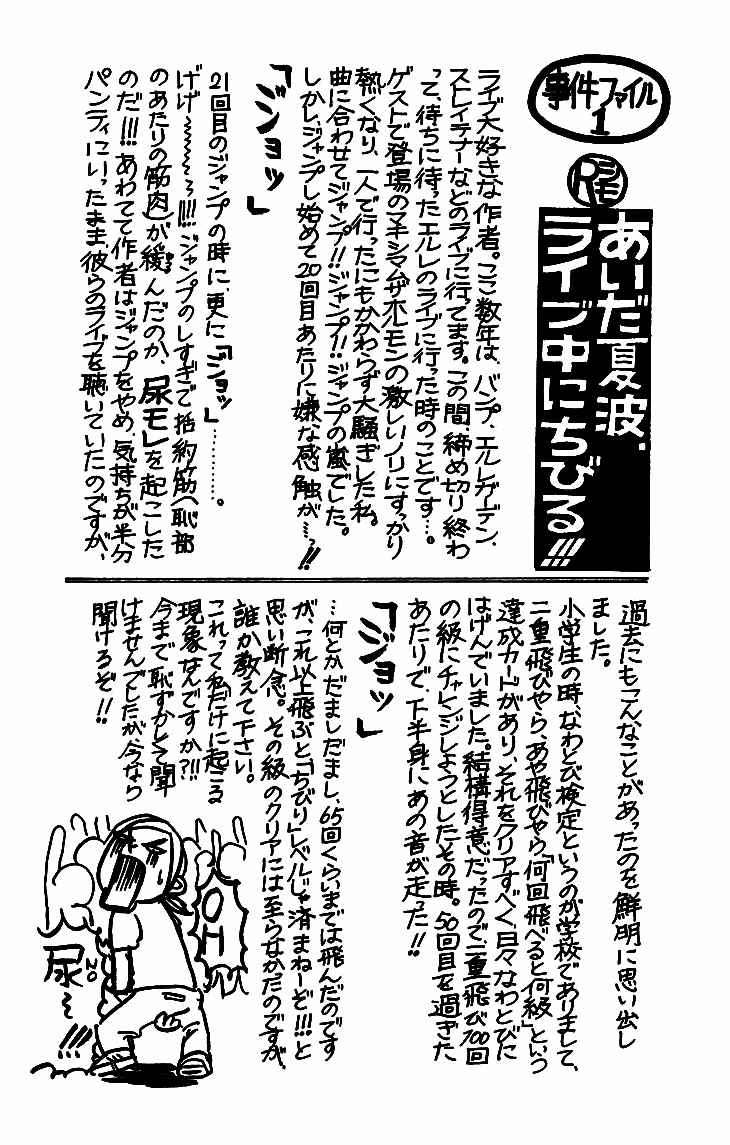 事件ファイル
1
R シモ
あいだ夏波、
ライブ中にちびる!!!
ライブ大好きな作者。ここ数年は、バンプ、エルレガーデン、
ストレイテナーなどのライブに行ってます。この間、締め切り終わ
って、待ちに待ったエルレのライブに行った時のことです…。
ゲストで登場のマキシマムザホルモンの激しいノリにすっかり
熱くなり、一人で行ったにもかかわらず大騒ぎした私。
曲に合わせてジャンプ!!ジャンプ!!ジャンプの嵐でした。
しかし、ジャンプし始めて20回目あたりに嫌な感触が…っ!!
「ジョッ」
21回目のジャンプの時に、更に「ジョッ」………。
げげ〜〜〜〜っ!!!!ジャンプのしすぎで括約筋(恥部
のあたりの筋肉)が緩んだのか、尿モレを起こした
のだ!!!あわてて作者はジャンプをやめ、気持ちが半分
パンティにいったまま、彼らのライブを聴いていたのですが、
過去にもこんなことがあったのを鮮明に思い出し
ました。
小学生の時、なわとび検定というのが学校でありまして、
二重飛びやら、あや飛びやら、「何回飛べると何級」という
達成カードがあり、それをクリアすべく、日々なわとびに
はげんでいました。結構得意だったので二重飛び100回
の級にチャレンジしようとしたその時。50回目を過ぎた
あたりで、下半身にあの音が走った!!
「ジョッ」
…何とかだましだまし、65回くらいまでは飛んだのです
が、これ以上飛ぶと「ちびり」レベルじゃ済まねーぞ!!!と
思い断念。その級のクリアには至らなかったのですが、
誰か教えて下さい。
これって私だけに起こる
現象なんですか?!!
今まで恥ずかしくて聞
けませんでしたが、今なら
聞けるぞ!!
OH
尿
NO
〜!!!